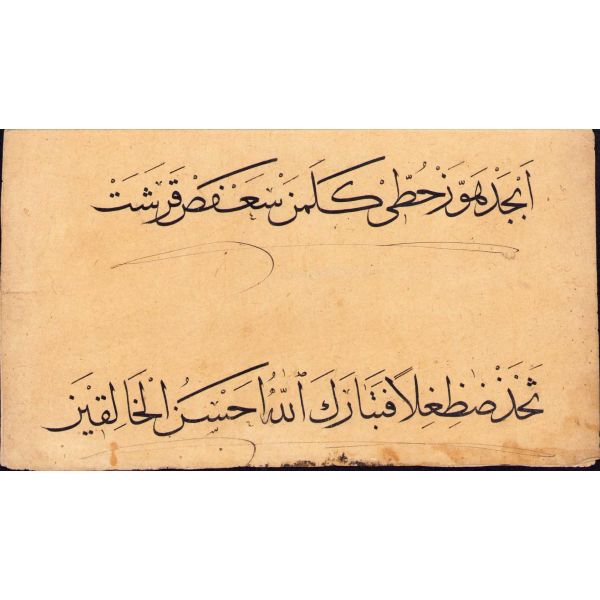 اَبْجَدْ هَوَّزْ حُطِّىْ كَلَمَنْ سَعْفَصْ قَرَشَتْ
ثَخَذْ ضَظِغِلاً فَتَبَارَكَ اللّٰهُ اَحْسَنُ الْخَالِقِيْنَ